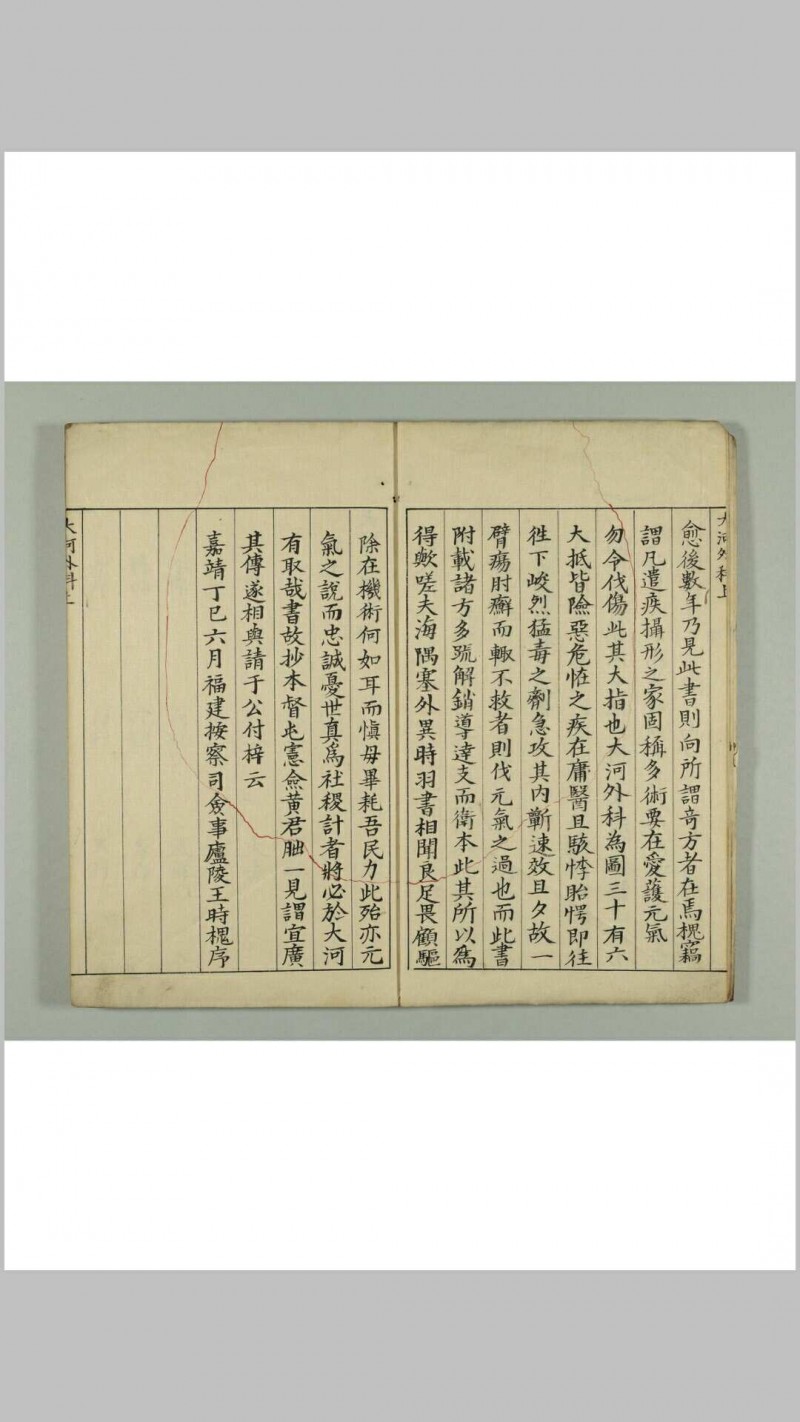 大河外科上
愈後數年乃見此書則向所謂竒方者在焉槐竊
謂凡遣疾攝形之家固稱多術要在愛護元氣
勿令伐傷此其大指也大河外科為圖三十有六
大抵皆險惡危恠之疾在庸醫且駭悸眙愕即徃
徃下峻烈猛毒之劑急攻其内蘄速效旦夕故一
臂瘍肘癬而輙不救者則伐元氣之過也而此書
附載諸方多䟽解銷導達支而衛本此其所以為
得歟嗟夫海隅塞外異時羽書相聞良足畏顧驅
除在機術何如耳而慎毋畢耗吾民力此殆亦元
氣之説而忠誠憂世真為社稷計者將必於大河
有取哉書故抄本督屯憲僉黄君朏一見謂宜廣
其傳遂相與請于公付梓云
嘉靖丁巳六月福建按察司僉事廬陵王時槐序
大河外科上